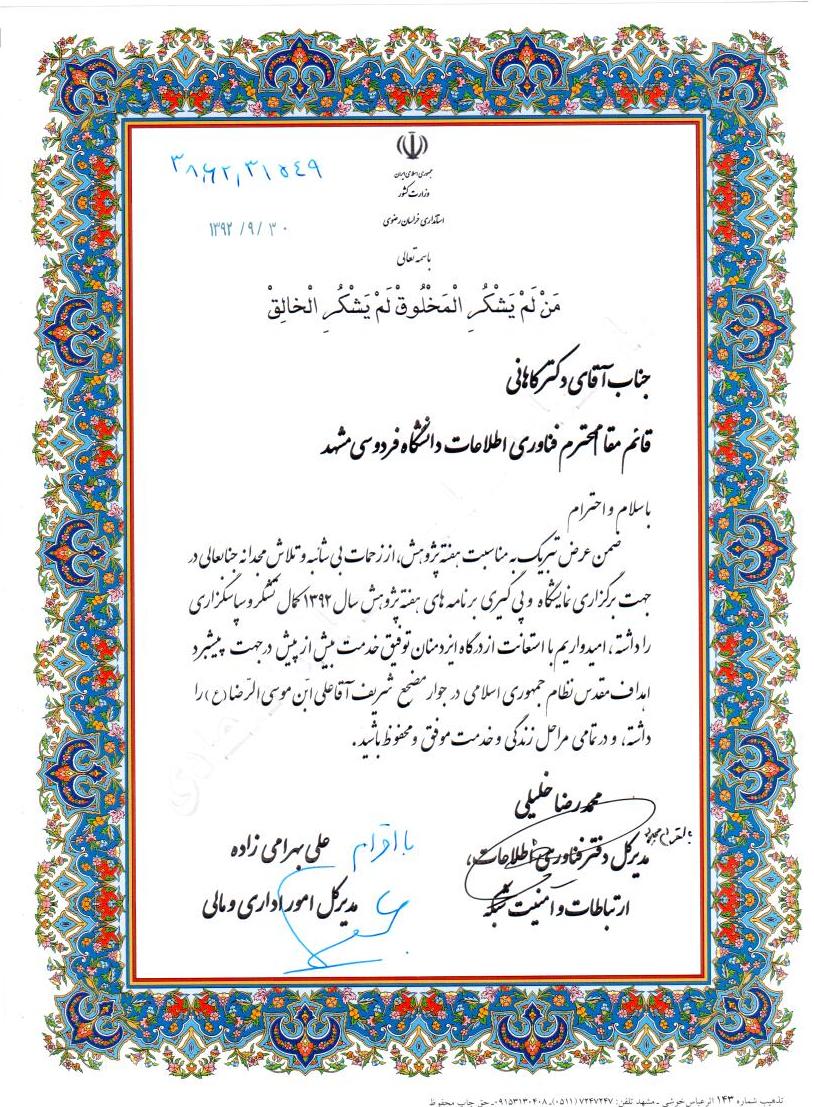 ۳۸/۶۲/۳۱۵۴۹
۱۳۹۲/۹/۳۰
جمهوری اسلامی ایران
وزارت کشور
استانداری خراسان رضوی
باسمه تعالی
مَنْ لَمْ یَشْکُرِ الْمَخْلُوقْ لَمْ یَشْکُرِ الْخالِقْ
جناب آقای دکتر کاهانی
قائم مقام محترم فناوری اطلاعات دانشگاه فردوسی مشهد
باسلام و احترام
ضمن عرض تبریک به مناسبت هفته پژوهش، از زحمات بی شائبه و تلاش مجدانه جنابعالی در
جهت برگزاری نمایشگاه و پی گیری برنامه های هفته پژوهش سال ۱۳۹۲ کمال تشکر و سپاسگزاری
را داشته، امیدواریم با استعانت از درگاه ایزد منان توفیق خدمت بیش از پیش در جهت پیشبرد
اهداف مقدس نظام جمهوری اسلامی در جوار مضجع شریف آقا علی ابن موسی الرّضا (ع) را
داشته، و در تمامی مراحل زندگی و خدمت موفق و محفوظ باشید.
محمدرضا خلیلی
مدیرکل دفتر فناوری اطلاعات،
ارتباطات و امنیت شبکه
با احترام
علی بهرامی زاده
مدیرکل امور اداری و مالی
تذهیب شماره ۱۴۳ اثر عباس خوشی - مشهد تلفن: ۷۲۴۷۲۴۷ (۰۵۱۱)ـ ۰۹۱۵۳۱۳۰۴۰۸ـ حق چاپ محفوظ